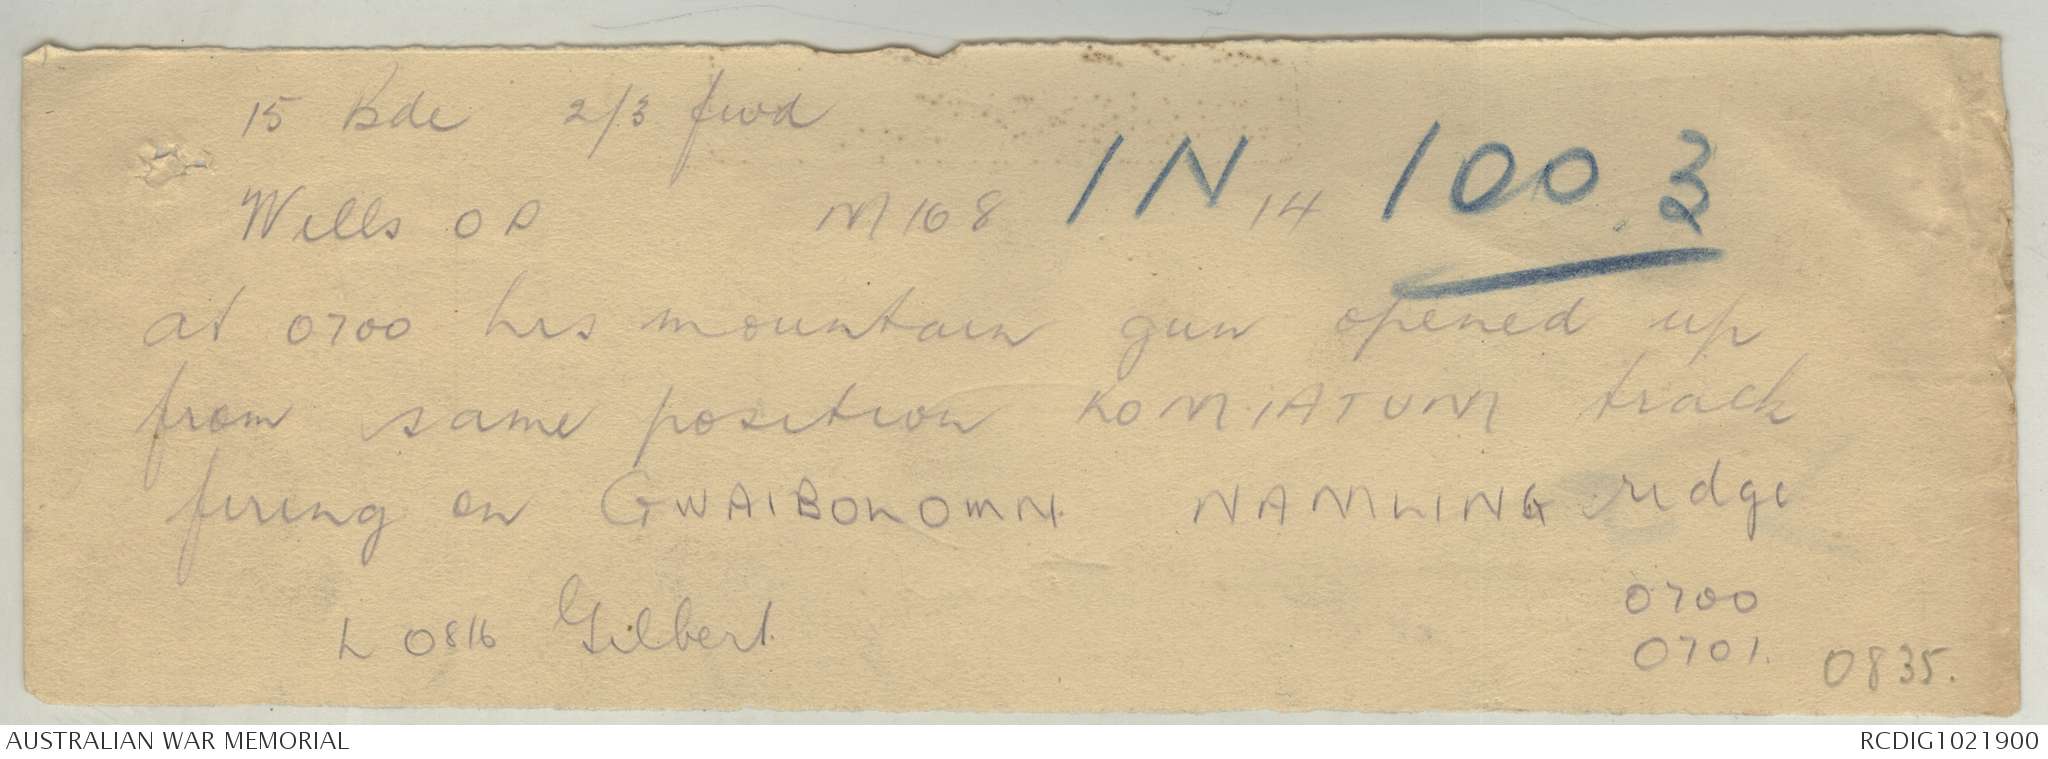 15 Bde 2/3 fwd
IN 100.3
Wills OP M108 14
at 0700 hrs mountain gun opened up
from same position KOMIATUM track
firing on GWAIBOLOMN. NAMLING ridge
L 0816 Gilbert.
0700
0701. 0835.
AUSTRALIAN WAR MEMORIAL RCDIG1021900